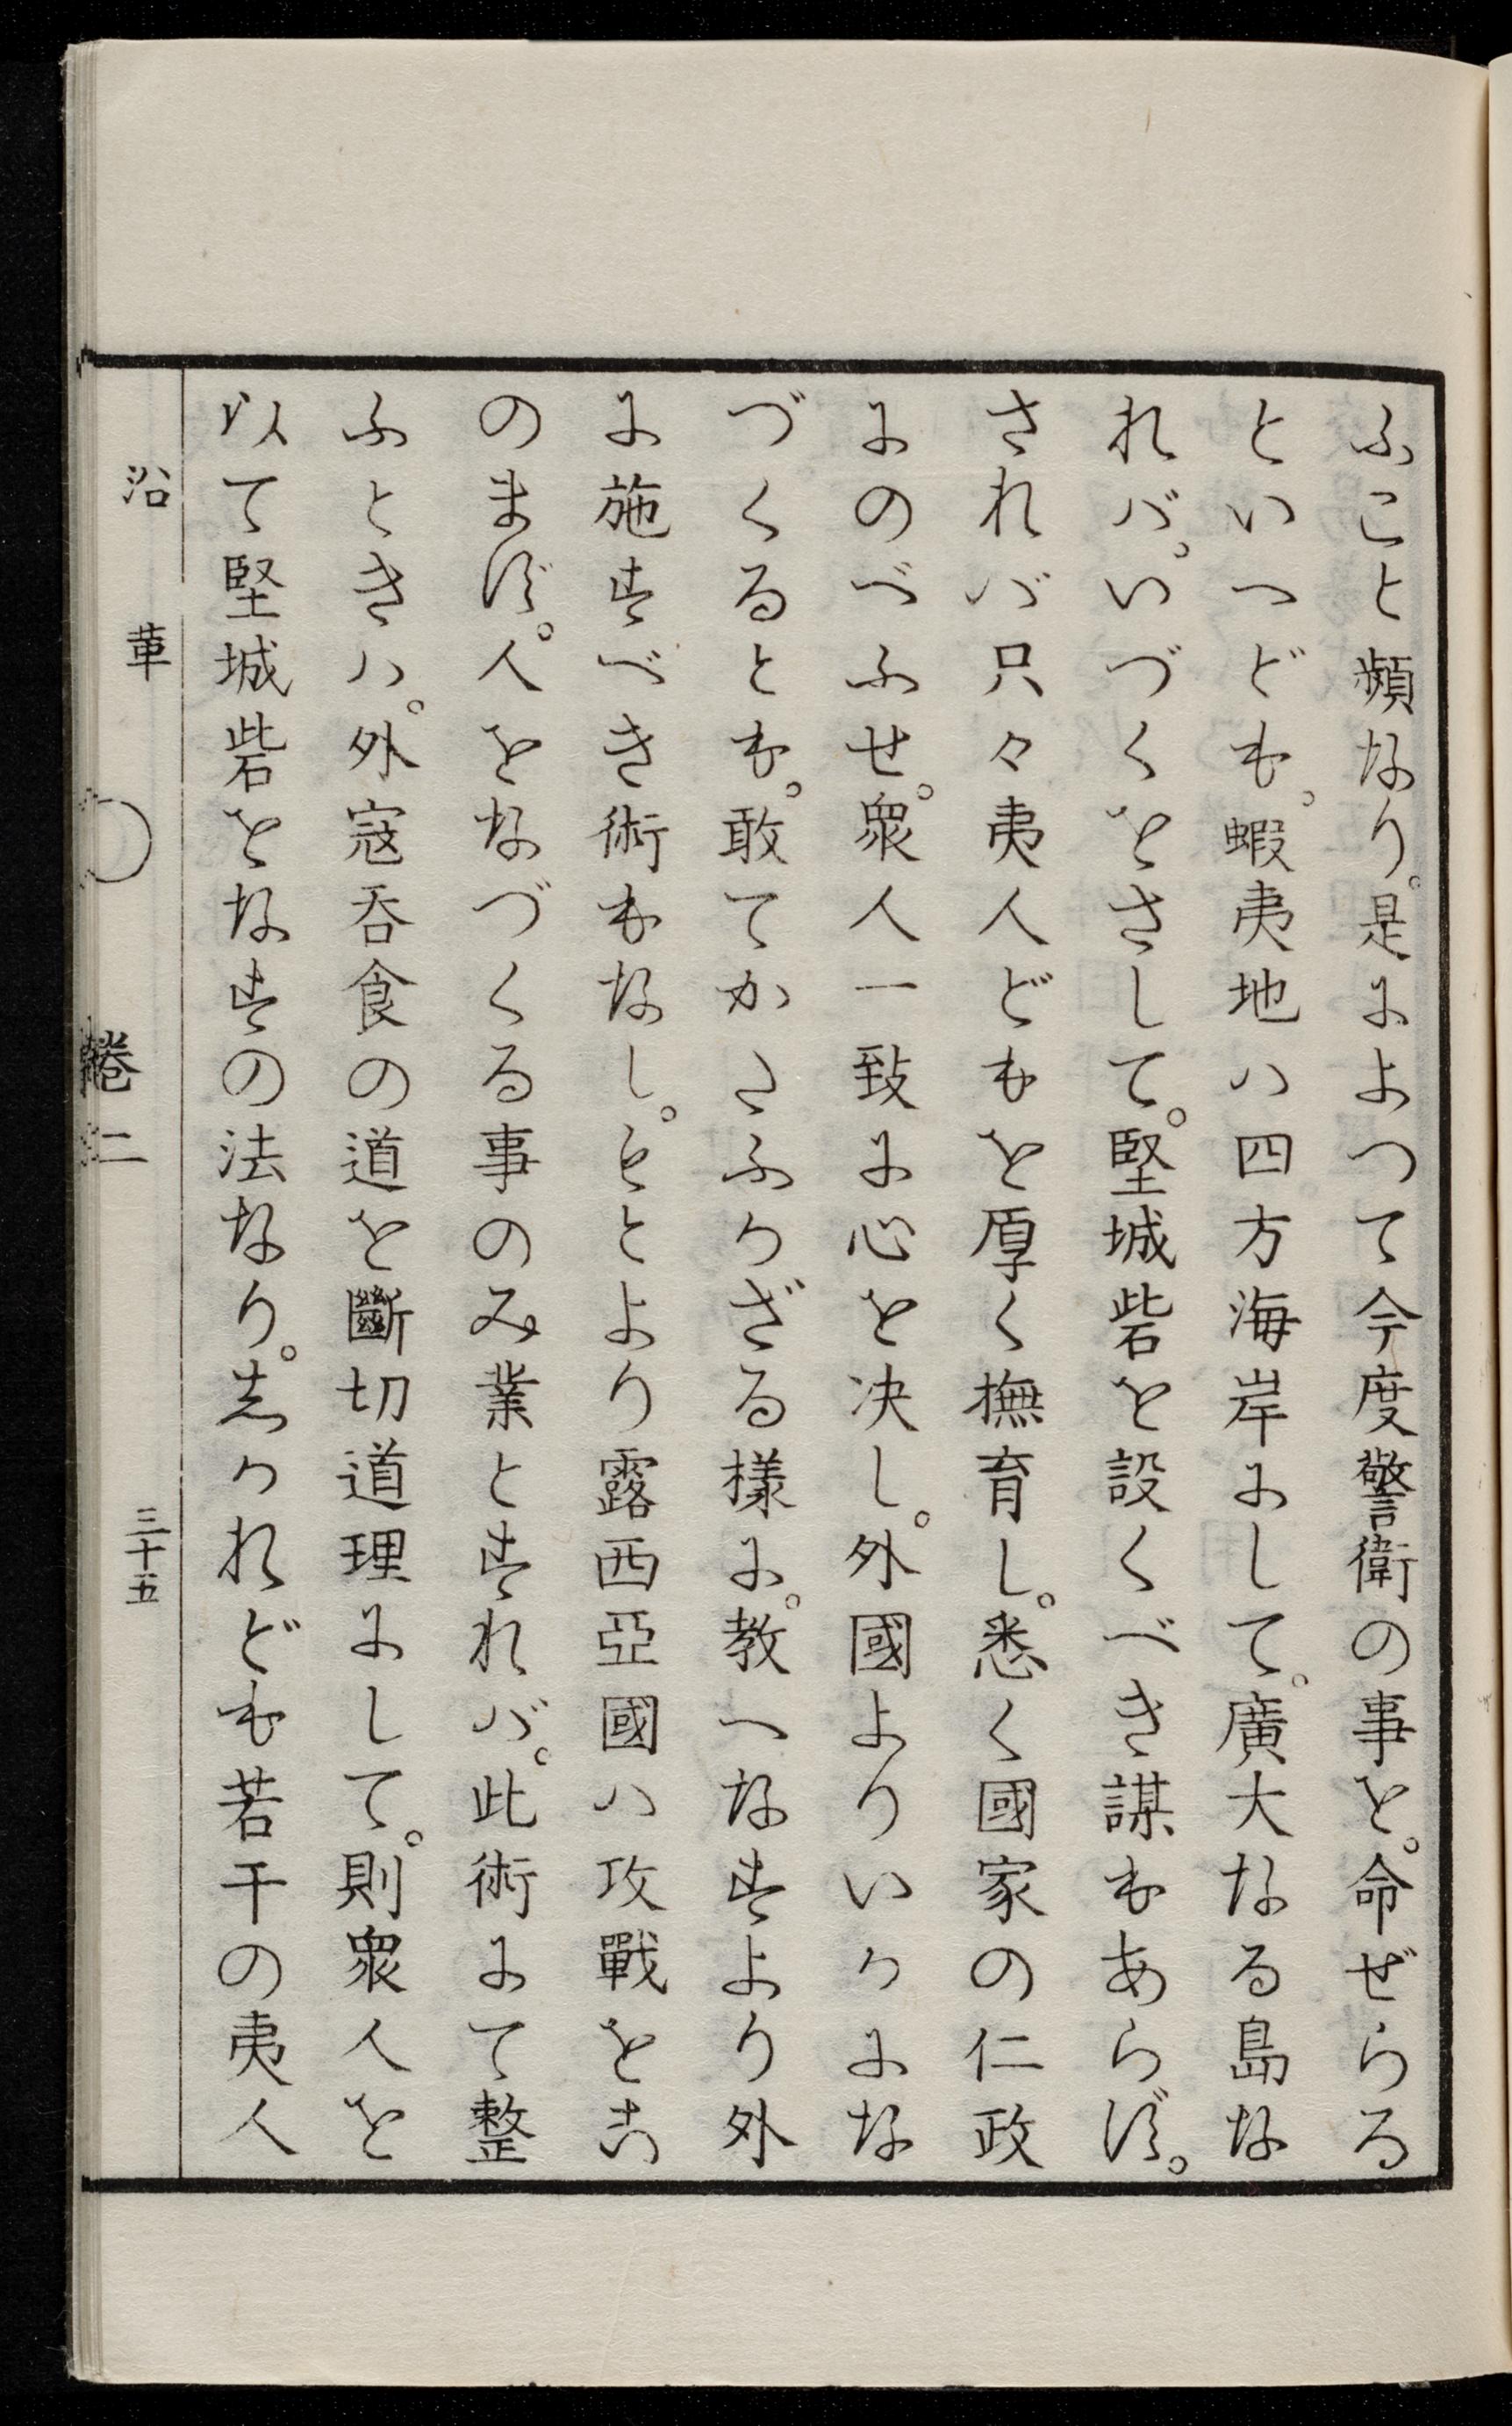 ふこと頻なり。是によつて今度警衛の事を。命ぜらる
といつども。蝦夷地ハ四方海岸にして。廣大なる島な
れバ。いづくをさして。堅城砦を設くべき謀もあらず。
されバ只々夷人どもを厚く撫育し。悉く國家の仁政
にのべふせ。衆人一致に心を决し。外國よりいかにな
づくるとも。敢てかたふかざる様に。教へなすより外
に施すべき術もなし。もとより露西亞國ハ攻戰をこ
のまず。人をなづくる事のみ業とすれバ。此術にて整
ふときハ。外寇呑食の道を斷切道理にして。則衆人を
以て堅城砦をなすの法なり。志かれども若干の夷人
沿革 巻二 三十五